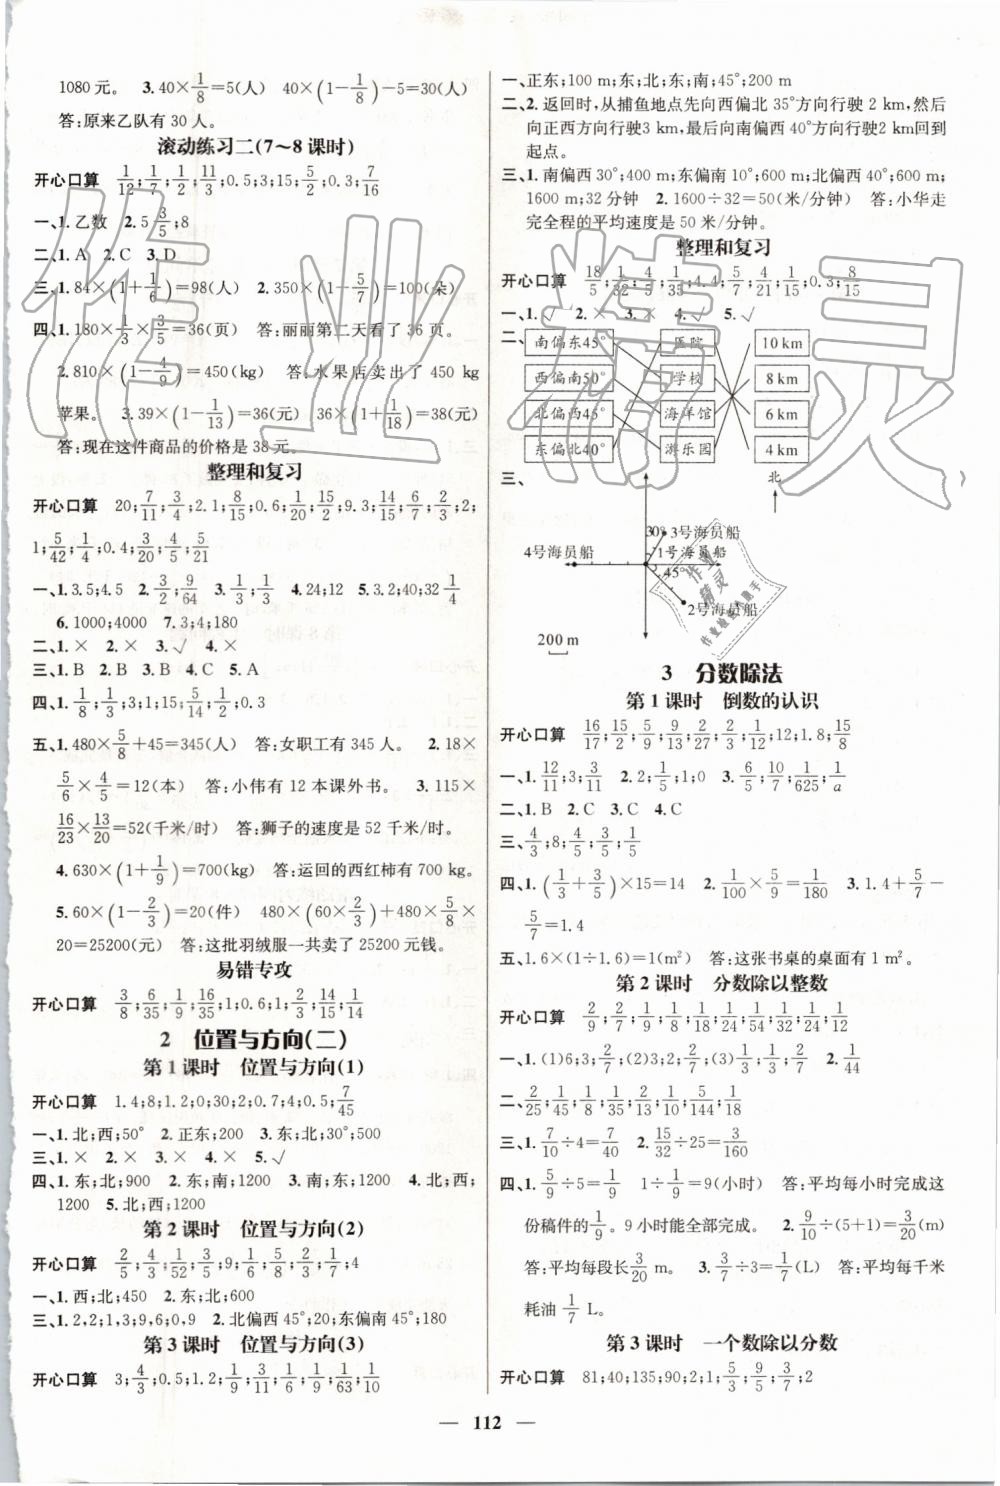 1080元。 3.40×1/8=5(人) 40×(1-1/8)-5=30(人)
答:原来乙队有30人。
滚动练习二(7~8课时)
开心口算 1/12;1/7;1/2;11/3;0.5;3;15;5/2;0.3;7/16
一、1.乙数 2.5 3/5;8
二、1.A 2.C 3.D
三、1.84×(1+1/6)=98(人) 2.350×(1-5/7)=100(朵)
四、1.180×1/3×3/5=36(页) 答:丽丽第二天看了36页。
2.810×(1-4/9)=450(kg) 答:水果店卖出了450 kg
苹果。 3.39×(1-1/13)=36(元) 36×(1+1/18)=38(元)
答:现在这件商品的价格是38元。
整理和复习
开心口算 20;7/11;3/4;2.1;8/15;0.6;1/20;15/2;9.3;14/15;6/7;2/3;2;
1;5/42;1/4;0.4;4/21;5/21
一、1.3.5;4.5 2.3/2;9/64 3.1/3;1/3 4.24;12 5.3.2;40;32 1/4
6.1000;4000 7.3;4;180
二、1.× 2.× 3.√ 4.×
三、1.B 2.B 3.B 4.C 5.A
四、1.1/8;1/3;3;1;15;5/14;1/2;0.3
五、1.480×5/8+45=345(人) 答:女职工有345人。 2.18×
5/6×4/5=12(本) 答:小伟有12本课外书。 3.115×
16/23×13/20=52(千米/时) 答:狮子的速度是52千米/时。
4.630×(1+1/9)=700(kg) 答:运回的西红柿有700 kg。
5.60×(1-2/3)=20(件) 480×(60×2/3)+480×5/8×
20=25200(元) 答:这批羽绒服一共卖了25200元钱。
易错专攻
开心口算 3/8;6/35;1/9;16/35;1;0.6;1;2/3;14/15;1/14
2 位置与方向(二)
第1课时 位置与方向(1)
开心口算 1.4;8;1.2;0;30;2;0.7;4;0.5;7/45
一、1.北;西;50° 2.正东;200 3.东;北;30°;500
三、1.× 2.× 3.× 4.× 5.√
四、1.东;北;900 2.东;南;1200 3.南;东;1200 4.北;西;
1200 5.北;西;1200
第2课时 位置与方向(2)
开心口算 2/5;4/3;1/52;3/5;9;1/6;5/8;2/3;1/7;4
一、1.西;北;450 2.东;北;600
三、1.2,2;1,3;9,6;0,9 2.北偏西45°;20;东偏南45°;180
第3课时 位置与方向(3)
开心口算 3;4/3;0.5;1.2;1/9;3/11;1/6;1/63;1/10
一、正东;100 m;东;北;东;南;45°;200 m
二、2.返回时,从捕鱼地点先向西偏北35°方向行驶2 km,然后
向正西方向行驶3 km,最后向南偏西40°方向行驶2 km回到
起点。
三、1.南偏西30°;400 m;东偏南10°;300 m;北偏西40°;900 m;
1600 m;32分钟 2.1600÷32=50(米/分钟) 答:小华走
完全程的平均速度是50米/分钟。
整理和复习
开心口算 18/5;1/32;4/5;1/35;4.4;5/7;4/21;1/15;0.3;8/15
一、1.√ 2.× 3.× 4.√ 5.√
二、南偏东45° 医院 10 km
西偏南50° 学校 8 km
北偏西45° 海洋馆 6 km
东偏北40° 游乐园 4 km
三、
北
30° 3号海员船
4号海员船 1号海员船
45°
2号海员船
200 m
3 分数除法
第1课时 倒数的认识
开心口算 16/17;15/2;5/9;9/13;2/27;2/3;1/12;12;1.8;15/8
一、1.12/11;3;3/11 2.2;1;1/5;0 3.6/5;10/7;1/625;1/a
二、1.B 2.C 3.C 4.C
三、4/3;8;3/5;1/3;1/5
四、1.(1/3+3/5)×15=14 2.1/100×5/9=1/180 3.1.4+5/7-
5/7=1.4
五、1.6×(1÷1.6)=1(m²) 答:这张书桌的桌面有1 m²。
第2课时 分数除以整数
开心口算 2/9;2/7;1/9;1/8;1/18;1/24;1/54;1/32;1/24;1/12
一、1.(1)6;3;2/7 (2)3;2;2/7;(3)1/3;2/7 2.1/44
二、2/25;1/45;1/8;1/35;2/13;4/10;5/144;1/18
三、1.7/10÷4=7/40 2.15/32÷25=3/160
四、1.5/9÷5=1/9 1÷1/9=9(小时) 答:平均每小时完成这
份稿件的1/9。9小时能全部完成。 2.9/10÷(5+1)=3/20(m)
答:平均每段长3/20 m。 3.3/7÷3=1/7(L) 答:平均每千米
耗油1/7 L。
第3课时 一个数除以分数
开心口算 81;40;135;90;2;1/3;5/3;9/5;3/7;2
112
作业精灵
作业精灵
作业检查小助手